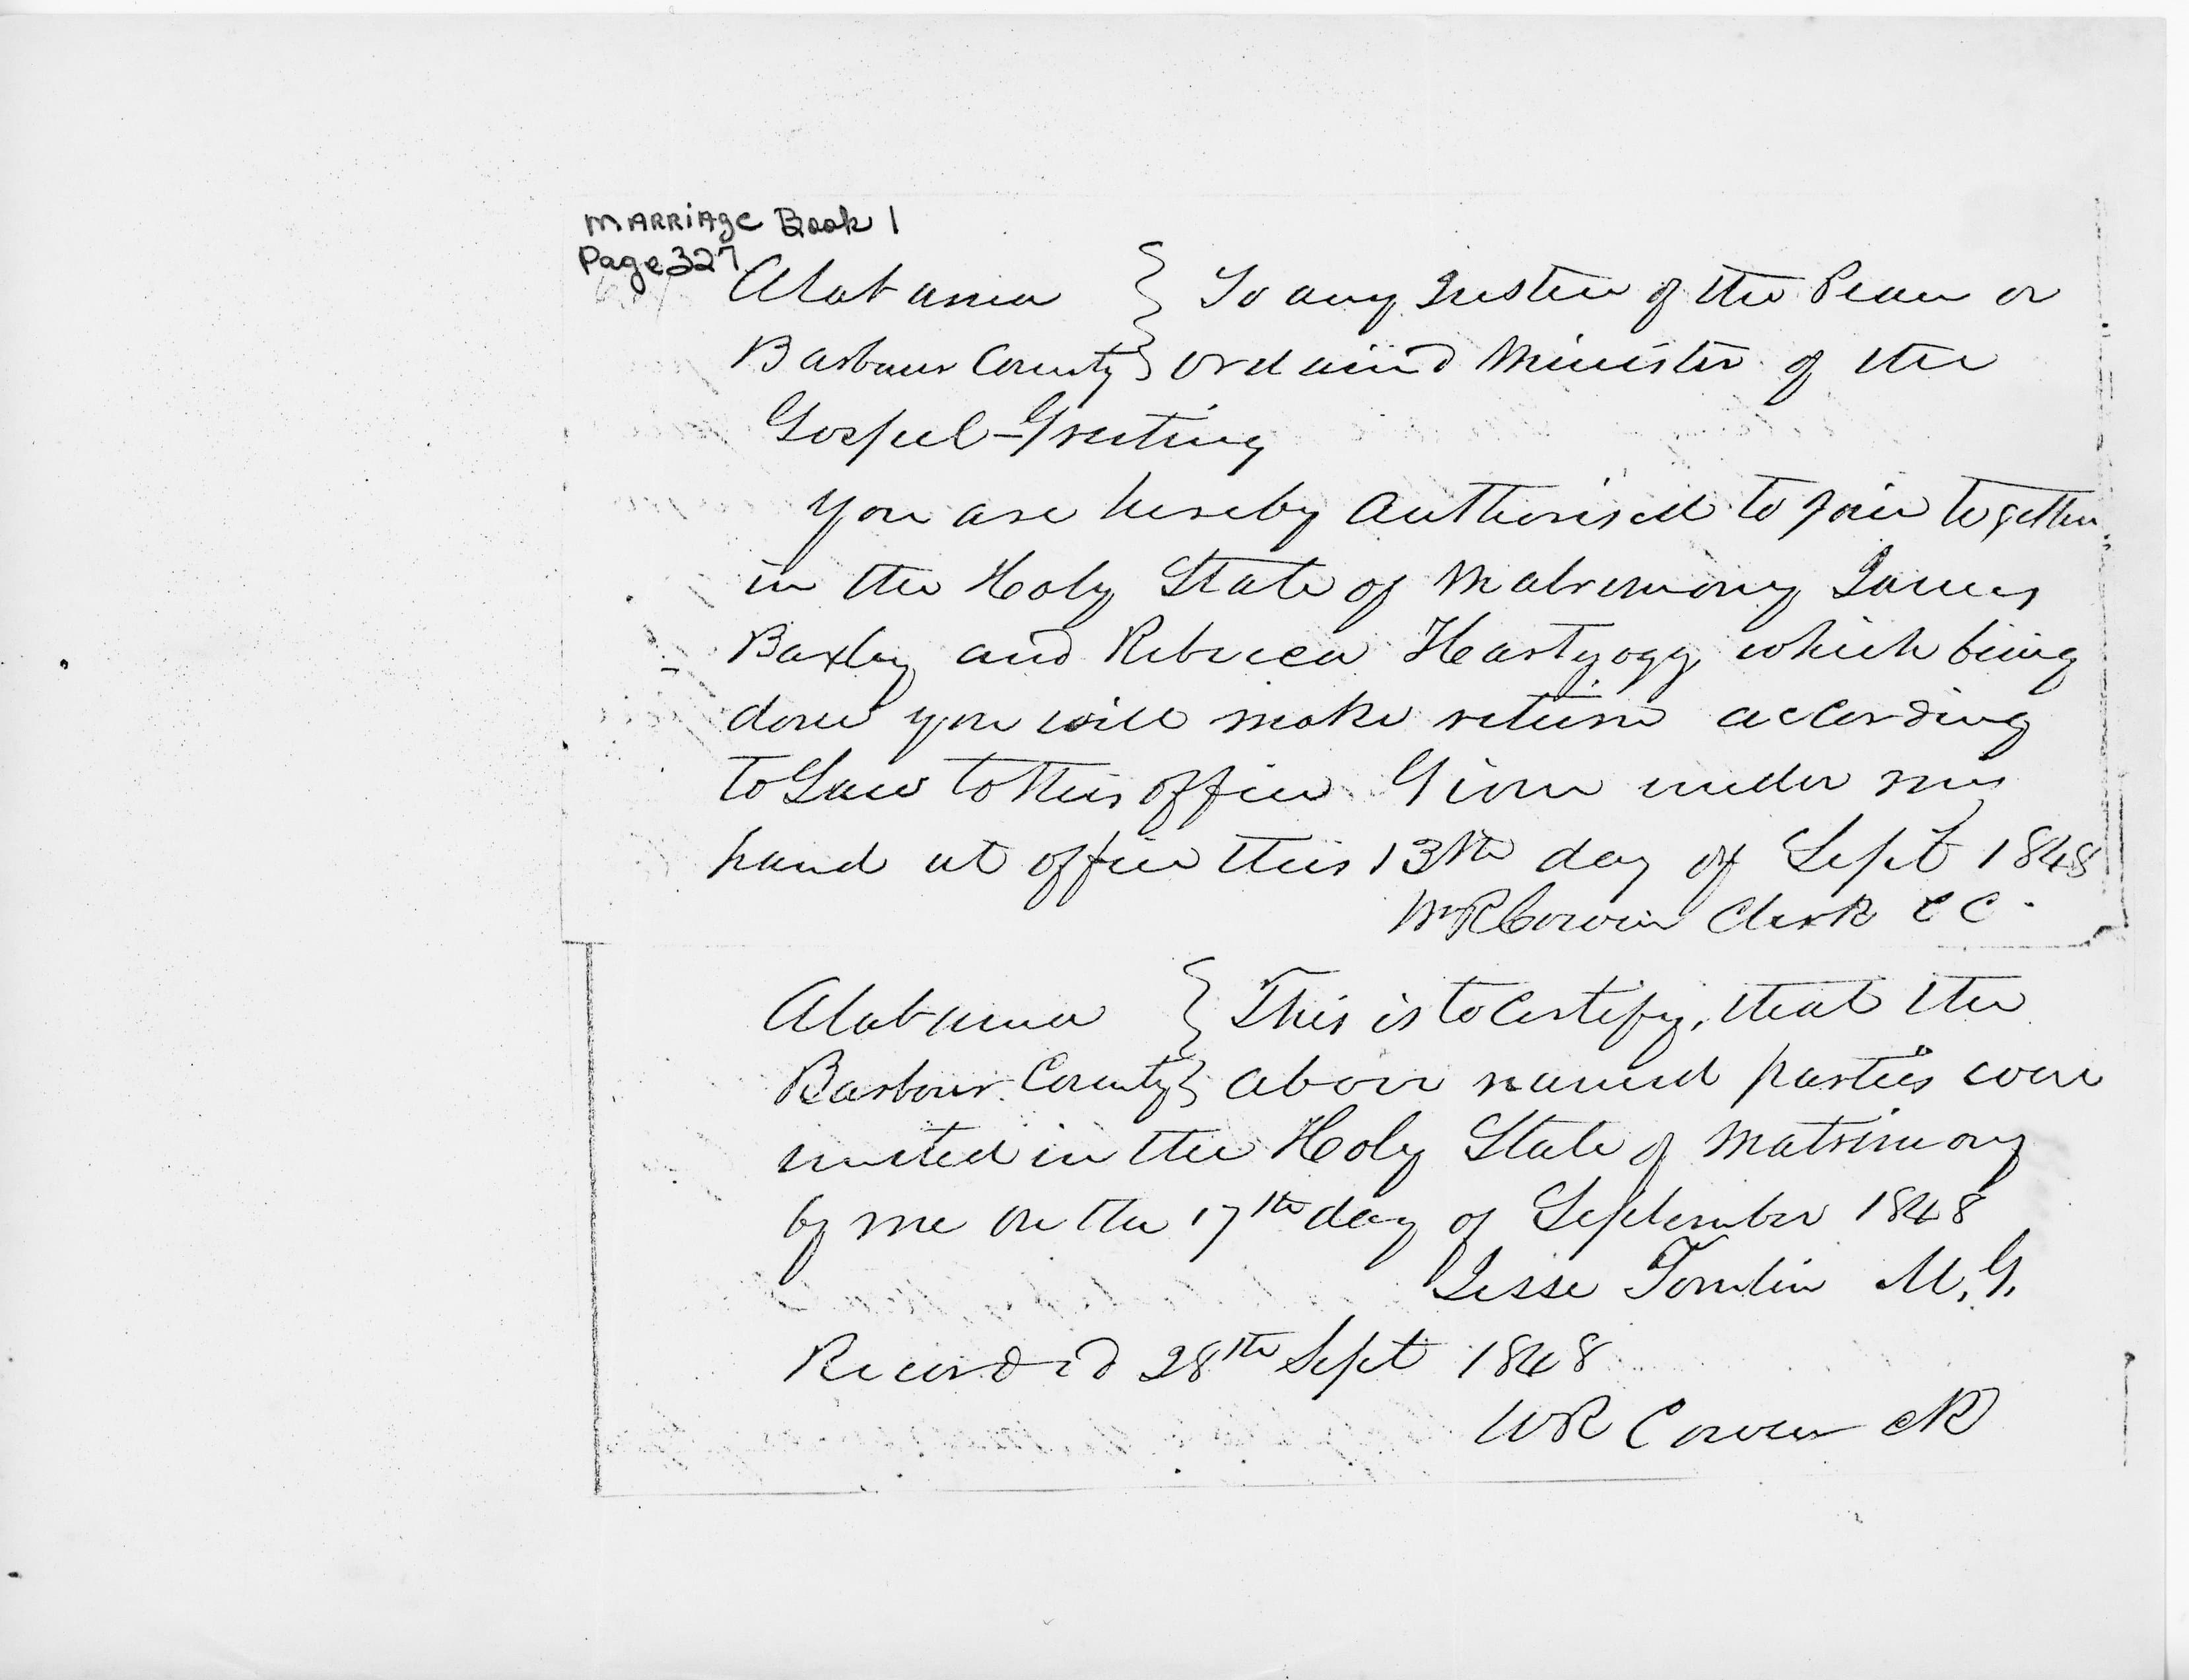 Marriage Book 1
Page 327
Alabama } To any Justice of the Peace or
Barbour County } Ordained Minister of the
Gospel - Greeting
You are hereby Authorised to join together
in the Holy State of Matrimony James
Baxley and Rebecca Hartzogg, which being
done you will make return according
to Law to this office. Given under my
hand at office this 13th day of Sept 1848
Wm R Cowin Clerk C C
Alabama } This is to Certify, that the
Barbour County } above named parties were
united in the Holy State of Matrimony
by me on the 17th day of September 1848
Jesse Tomlin M.G.
Recorded 28th Sept 1848
WR Cowin Clk